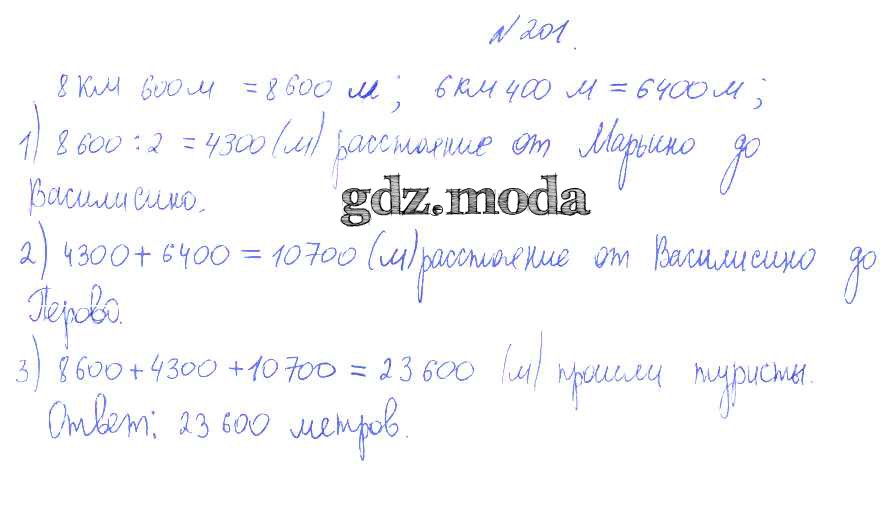 № 201.
8 км 600 м = 8600 м; 6 км 400 м = 6400 м;
1) 8600 : 2 = 4300 (м) расстояние от Марьино до
Василисино.
gdz.moda
2) 4300 + 6400 = 10700 (м) расстояние от Василисино до
Перово.
3) 8600 + 4300 + 10700 = 23600 (м) прошли туристы.
Ответ: 23600 метров.